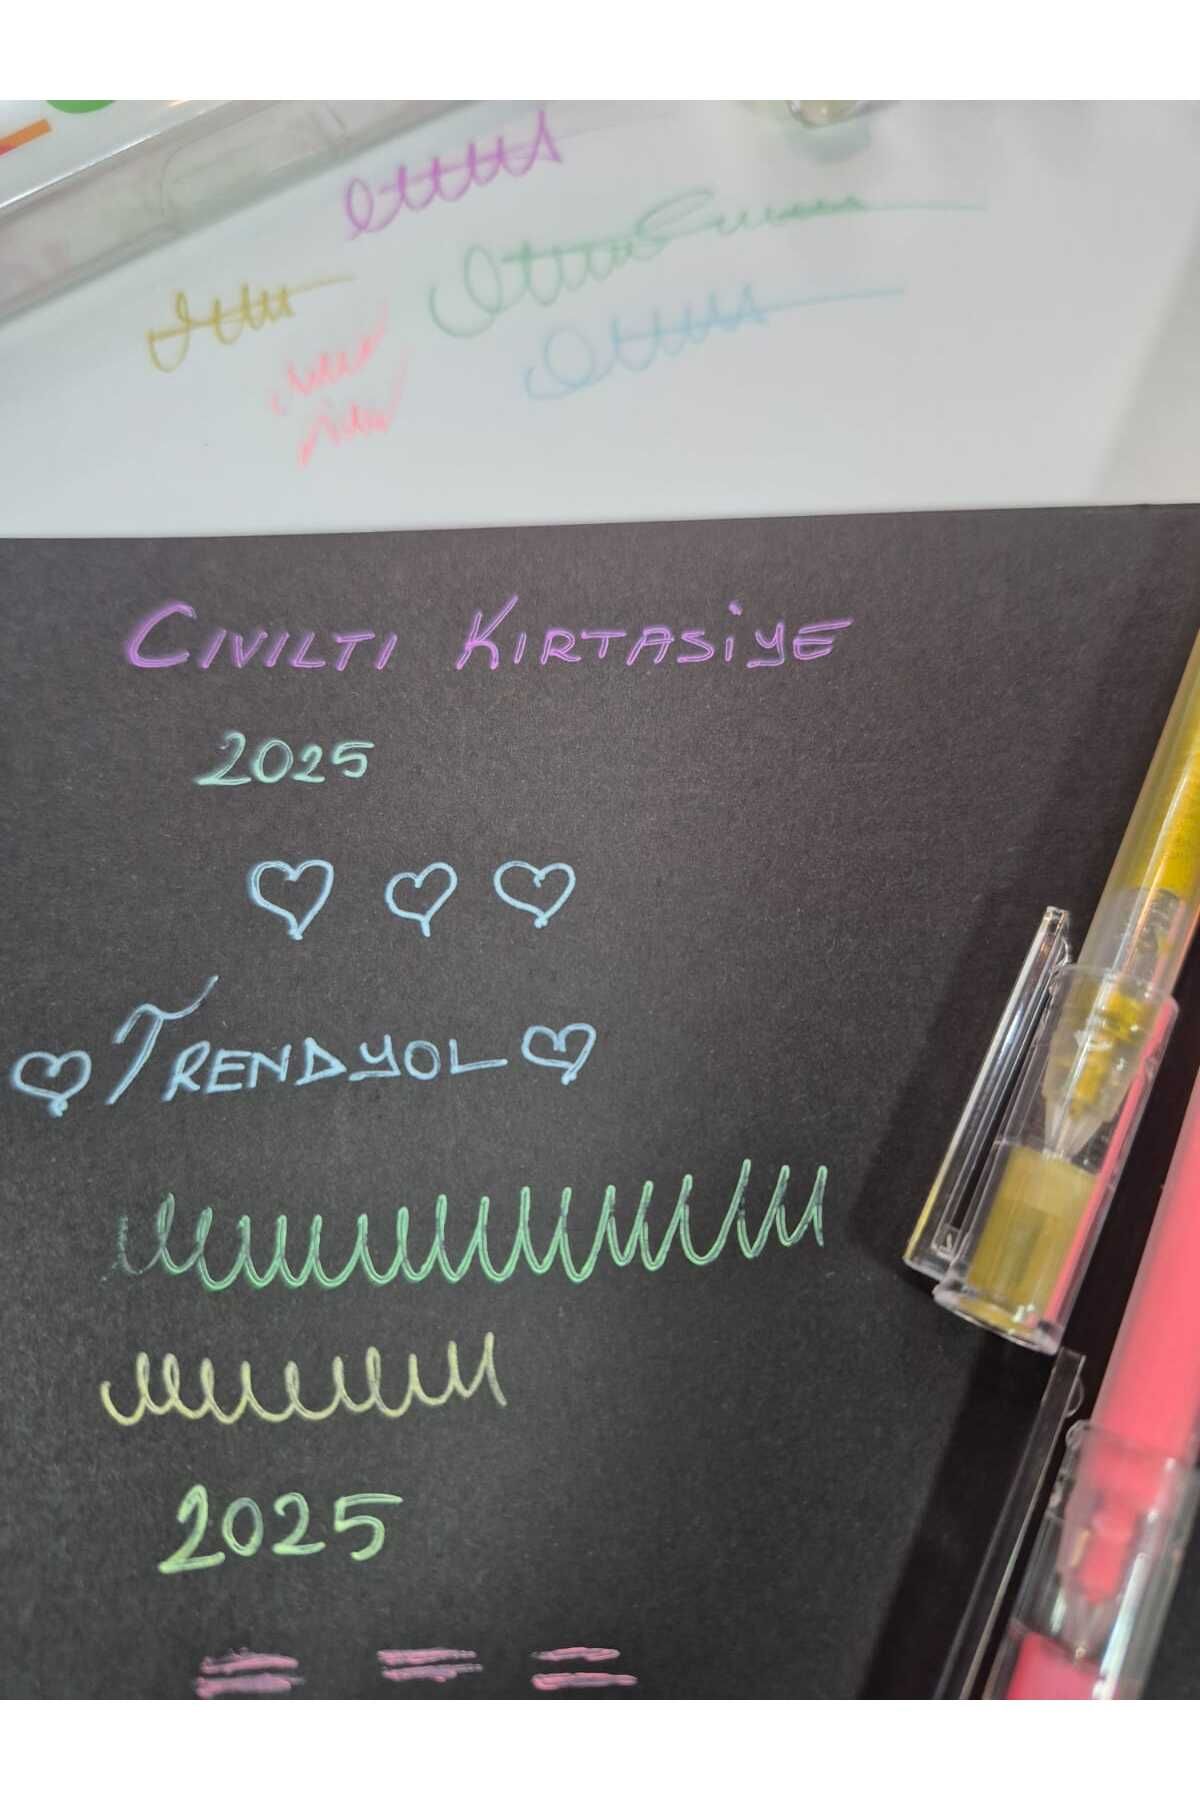 CIVILTI KIRTASİYE
2025
TRENDYOL
2025